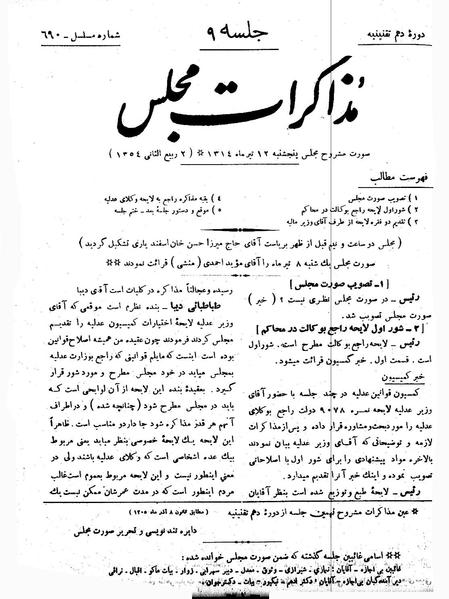 دورهٔ دهم تقنینیه
جلسه ۹
شماره مسلسل ـ ۶۹۰
مذاکرات مجلس
صورت مشروح مجلس پنجشنبه ۱۲ تیرماه ۱۳۱۴ * ( ۲ ربیع الثانی ۱۳۵۴ )
فهرست مطالب
۱ ) تصویب صورت مجلس
۲ ) شور اول لایحه راجع بوکالت در محاکم
۳ ) تقدیم دو فقره لایحه از طرف آقای وزیر مالیه
۴ ) بقیه مذاکره راجع به لایحه وکلای عدلیه
۵ ) موقع و دستور جلسهٔ بعد ـ ختم جلسه
( مجلس دو ساعت و نیم قبل از ظهر بریاست آقای حاج میرزا حسن خان اسفندیاری تشکیل گردید )
صورت مجلس یك شنبه ۸ تیرماه را آقای مؤید احمدی ( منشی ) قرائت نمودند **
[ ۱ـ تصویب صورت مجلس ]
رئیس ـ در صورت مجلس نظری نیست ؟ ( خیر )
صورت مجلس تصویب شد.
[ ۲ ـ شور اول لایحه راجع بوکالت در محاکم ]
رئیس ـ لایحه راجع بوکالت مطرح است. شور اول
است . قسمت اول . خبر کمیسیون قرائت میشود.
خبر کمیسیون
کمیسیون قوانین عدلیه در چند جلسه با حضور آقای
وزیر عدلیه لایحه نمره ۹۰۷۸ دولت راجع بوکلای
عدلیه را مورد بحث و مشاوره قرار داده و پس از مذاکرات
لازمه و توضیحاتی که آقای وزیر عدلیه بیان نمودند
بالاخره مواد پیشنهادی را برای شور اول با اصلاحاتی
تصویب نموده و اینك خبر آنرا تقدیم میدارد.
رئیس ـ لایحهٔ طبع و توزیع شده است بنظر آقایان
رسیده و عجالتاً مذاکره در کلیات است آقای دیبا
طباطبائی دیبا ـ بنده نظرم است موقعی که آقای
وزیر عدلیه لایحهٔ اختیارات کمیسیون عدلیه را تقدیم
مجلس کردند فرمودند چون عقیده من همیشه اصلاح قوانین
بوده است اینست که مایلم قوانینی که راجع بوزارت عدلیه
بمجلس میاید در خود مجلس مطرح و مورد شور قرار
گیرد . بعقیدهٔ بنده این لایحه از آن لوایحی است که
باید در مجلس مطرح شود ( چنانچه شده ) و در اطراف
آنهم هر قدر مذاکره شود جا دارد و مناسب است. ظاهراً
این لایحه یك لایحهٔ خصوصی بنظر میاید یعنی مربوط
بیك عده اشخاصی است که وکلای عدلیه باشند ولی در
معنی اینطور نیست و این لایحه مربوط بعموم است غالب
مردم اینطور است که در مدت عمرشان ممکن نیست یك
* عین مذاکرات مشروح نهمین جلسه از دورهٔ دهم تقنینیه
( مطابق قانون ۸ آذر ماه ۱۳۰۵ )
دایره تند نویسی و تحریر صورت مجلس
** اسامی غائبین جلسه گذشته که ضمن صورت مجلس خوانده شده :